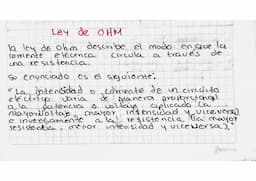 Ley de OHM
la ley de ohm, describe el modo en que la
corriente electrica circula a través de
una resistencia.
su enunciado es el siguiente:
"La intensidad o corriente de un circuito
electrico varia de manera proporcional
a la potencia o voltaje aplicado (a
mayor voltaje, mayor intensidad y viceversa)
e inversamente a la resistencia (a mayor
resistencia, menor intensidad y viceversa)."